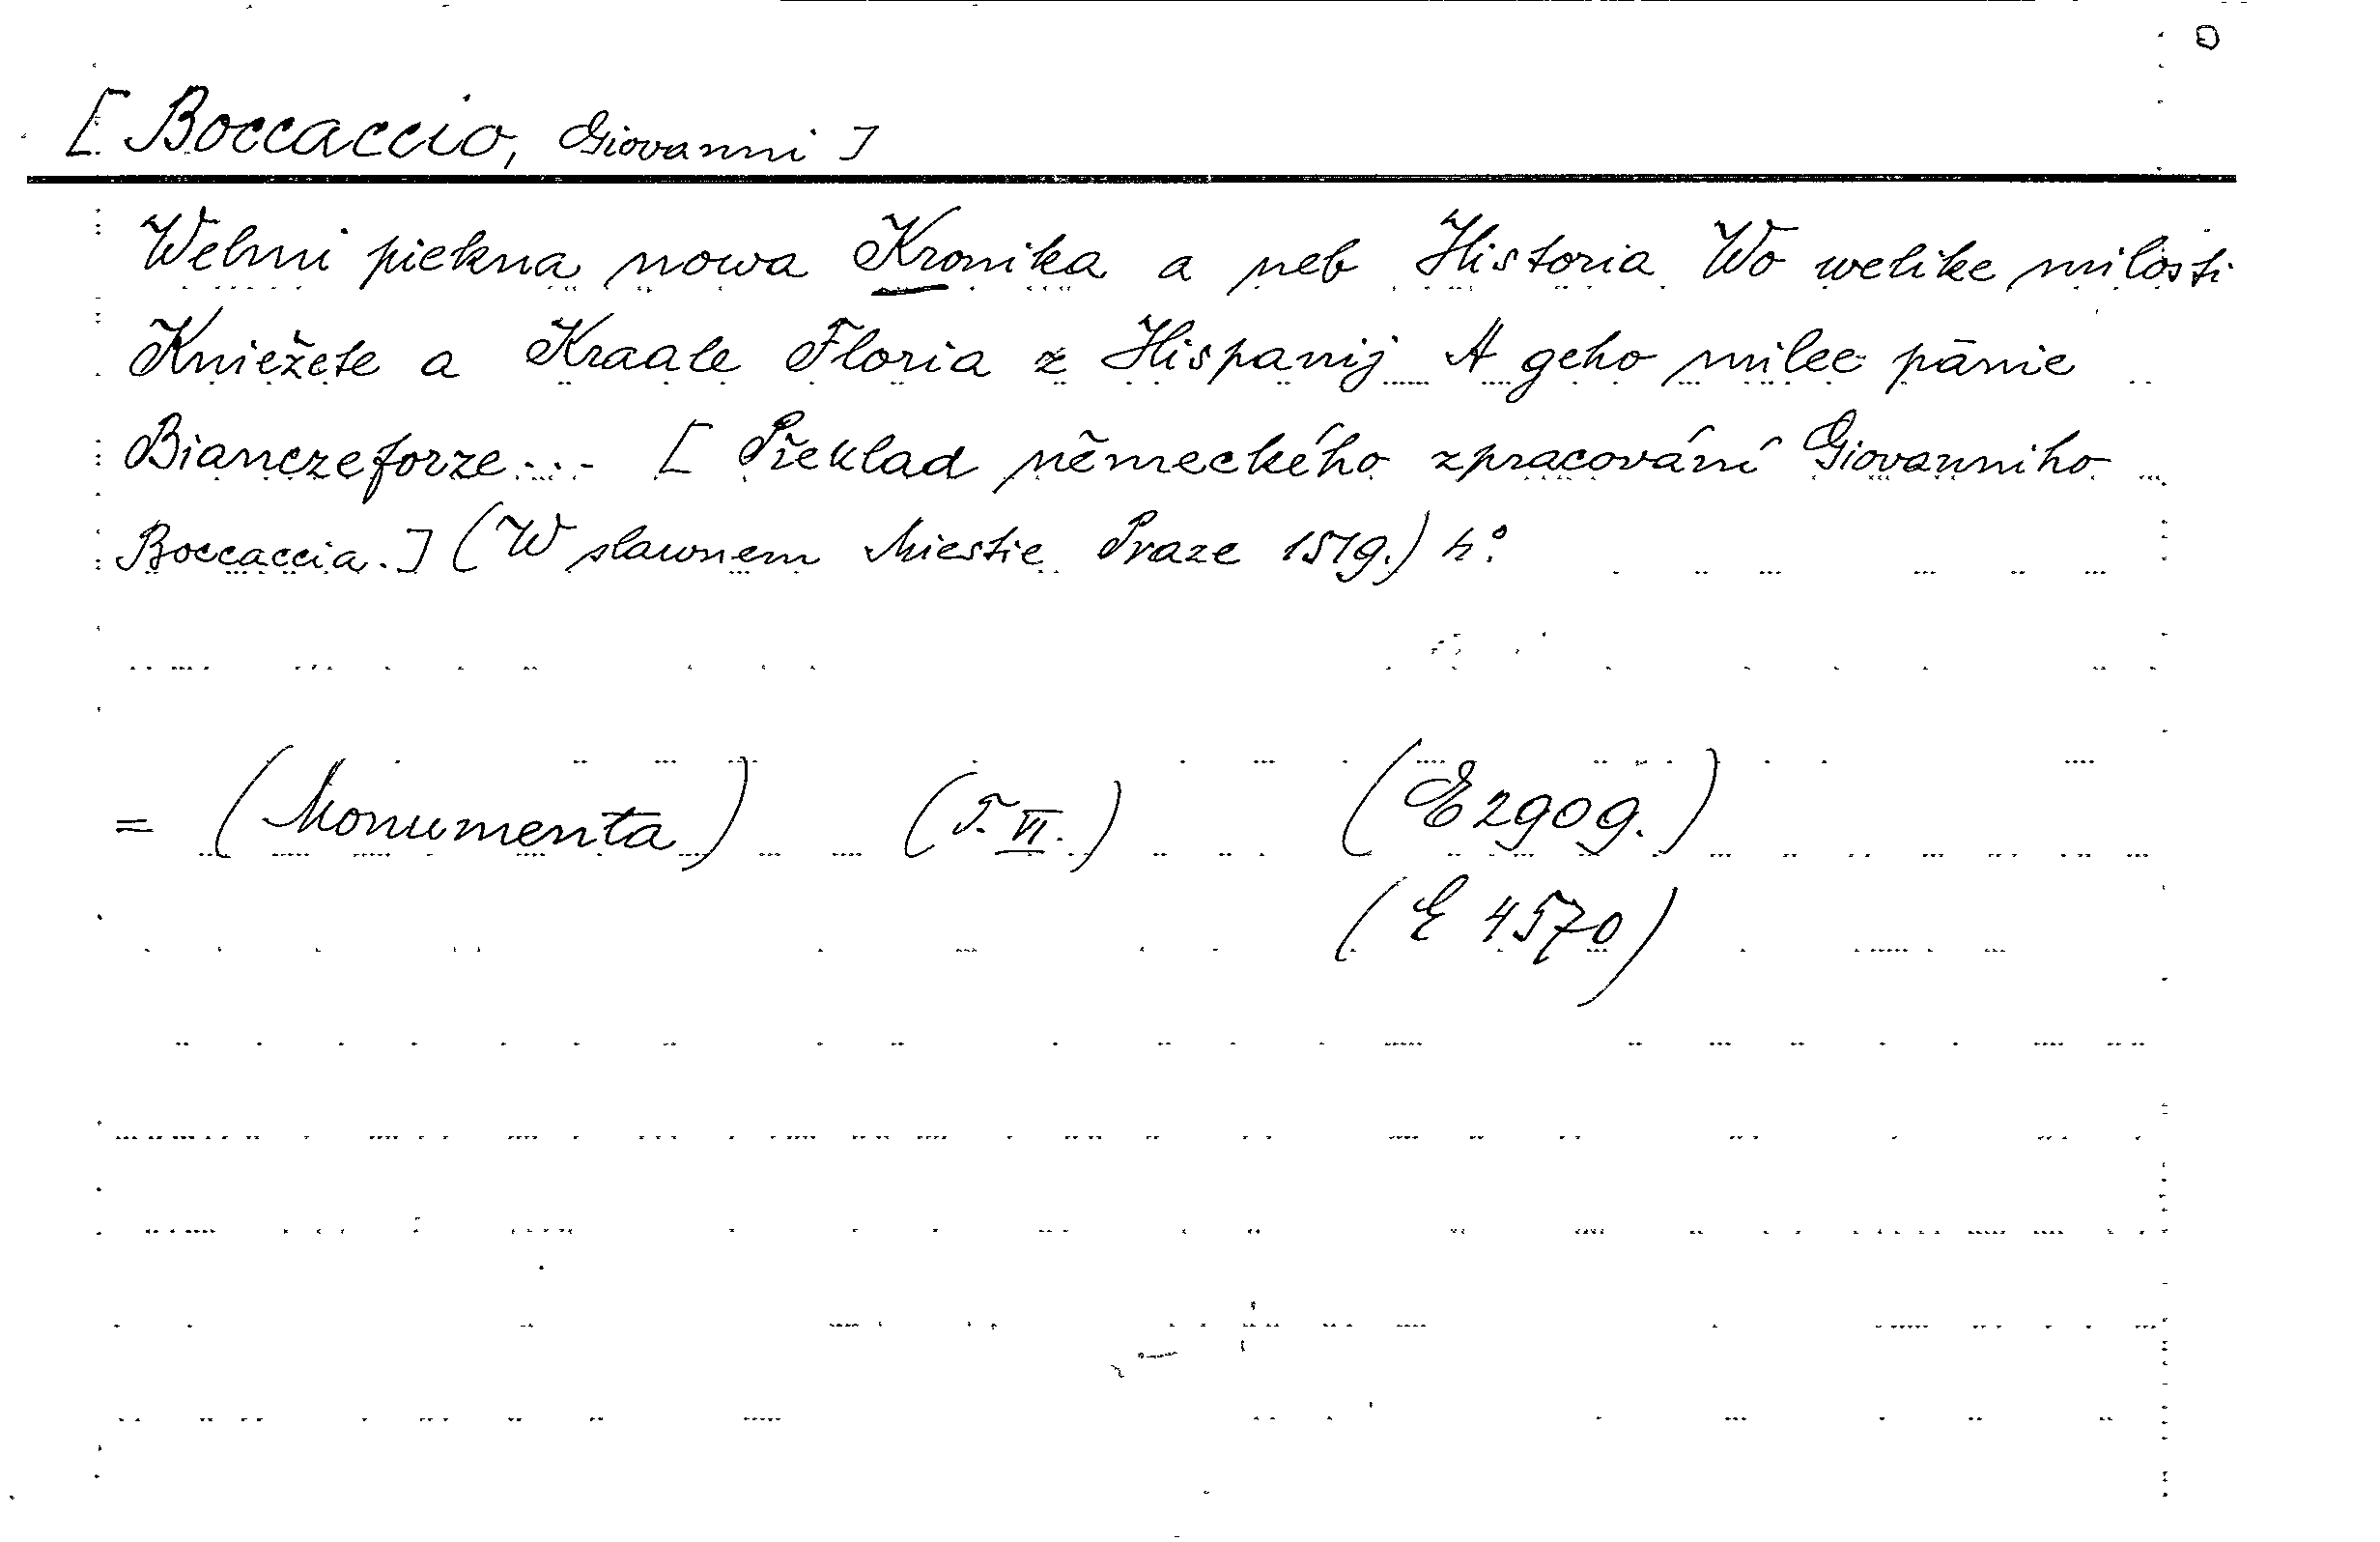 [Boccaccio, Giovanni]
Welmi piekna nowa Kronika a neb Historia Wo welike milosti
Kniežete a Kraale Floria z Hispanij A geho milee pānie
Bianczeforze... [Překlad německého zpracování Giovanniho
Boccaccia.] (W slawnem Miestie Praze 1519.) 4°.
= (Monumenta) (T. VI.) (E 2909.)
(E 4570)